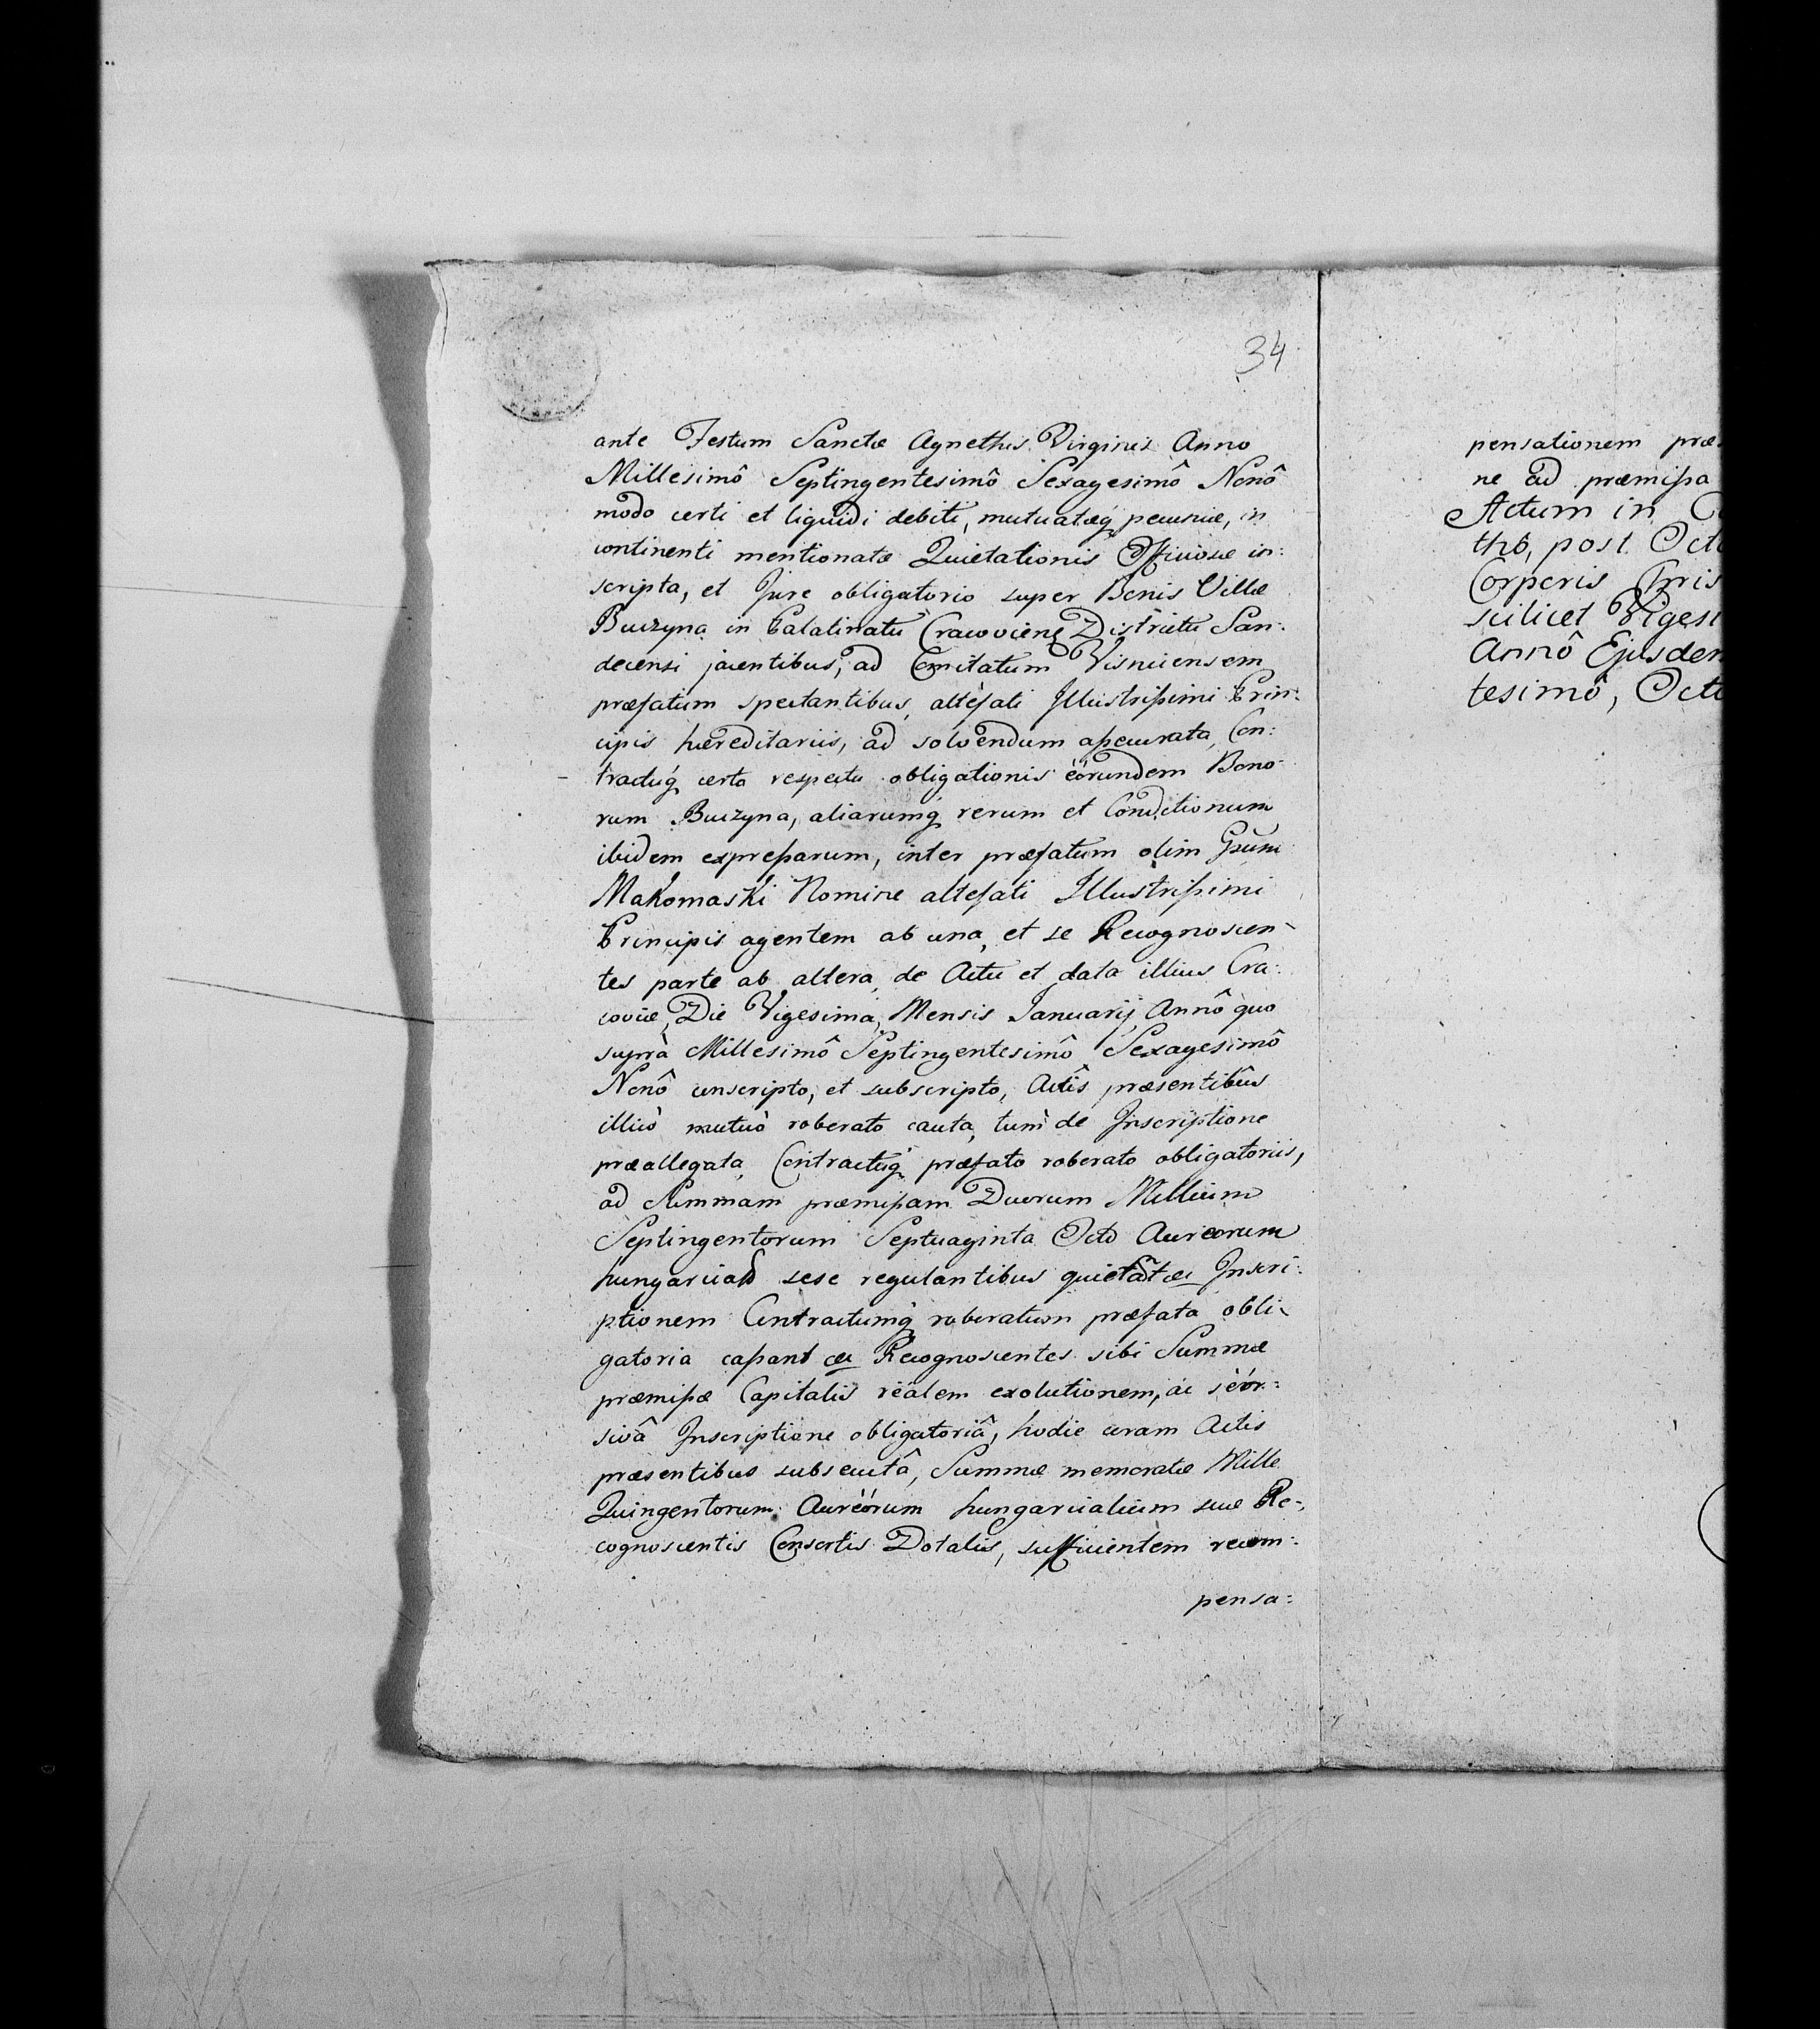 34
ante Festum Sanctæ Agnethis Virginis Anno
Millesimô Septingentesimô Sexagesimô Nonô
modo certi et liquidi debiti, mutuatæq pecuniæ, in
continenti mentionatæ Quietationis Officiosæ in:
scripta, et Jure obligatorio super Bonis Villæ
Buczyna in Palatinatu Cracovienẽ Districtu San:
decensi jacentibus, ad Comitatum Visnicensem
præfatum spectantibus, altefati Illustrissimi Prin:
cipis hæreditariis, ad solvendum assecurata, Con:
tractuq́ certo respectu obligationis eórundem Bono-
rum Buczyna, aliarumq́ rerum et Conditionum
ibidem expressarum, inter præfatum olim Gsum
Makomaski Nomine altefati Illustrissimi
Principis agentem ab una, et se Recognoscen-
tes parte ab altera, de Actu et data illius Cra:
coviæ, Die Vigesima, Mensis Januarij, Annô quo
suprà Millesimô Septingentesimô Sexagesimô
Nonô conscripto, et subscripto, Actîs præsentibûs
illicò mutuò roborato cauta, tum de Inscriptione
præallegata, Contractuq́ præfato roborato obligatoriis,
ad Summam præmissam Duorum Millium
Septingentorum Septuaginta Octo Aureorum
hungarical̃ sese regulantibus quietant ac Inscri:
ptionem Contractumq́ roboratum præfata obli-
gatoria cassant ac Recognoscentes sibi Summæ
præmissæ Capitalis reálem exolutionem, ac seór:
sivâ Inscriptione obligatoriâ, hodie coram Actis
præsentibus subsecutâ, Summæ memoratæ Mille
Quingentorum Aureórum hungaricalium suæ Re-
cognoscentis Consortis Dotalis, sufficientem recom:
pensa:
pensationem præ
ne ad præmissa
Actum in
thô, post Octa
Corporis Xris
scilicet Vigesi
Annô Ejusdem
tesimô, Octo